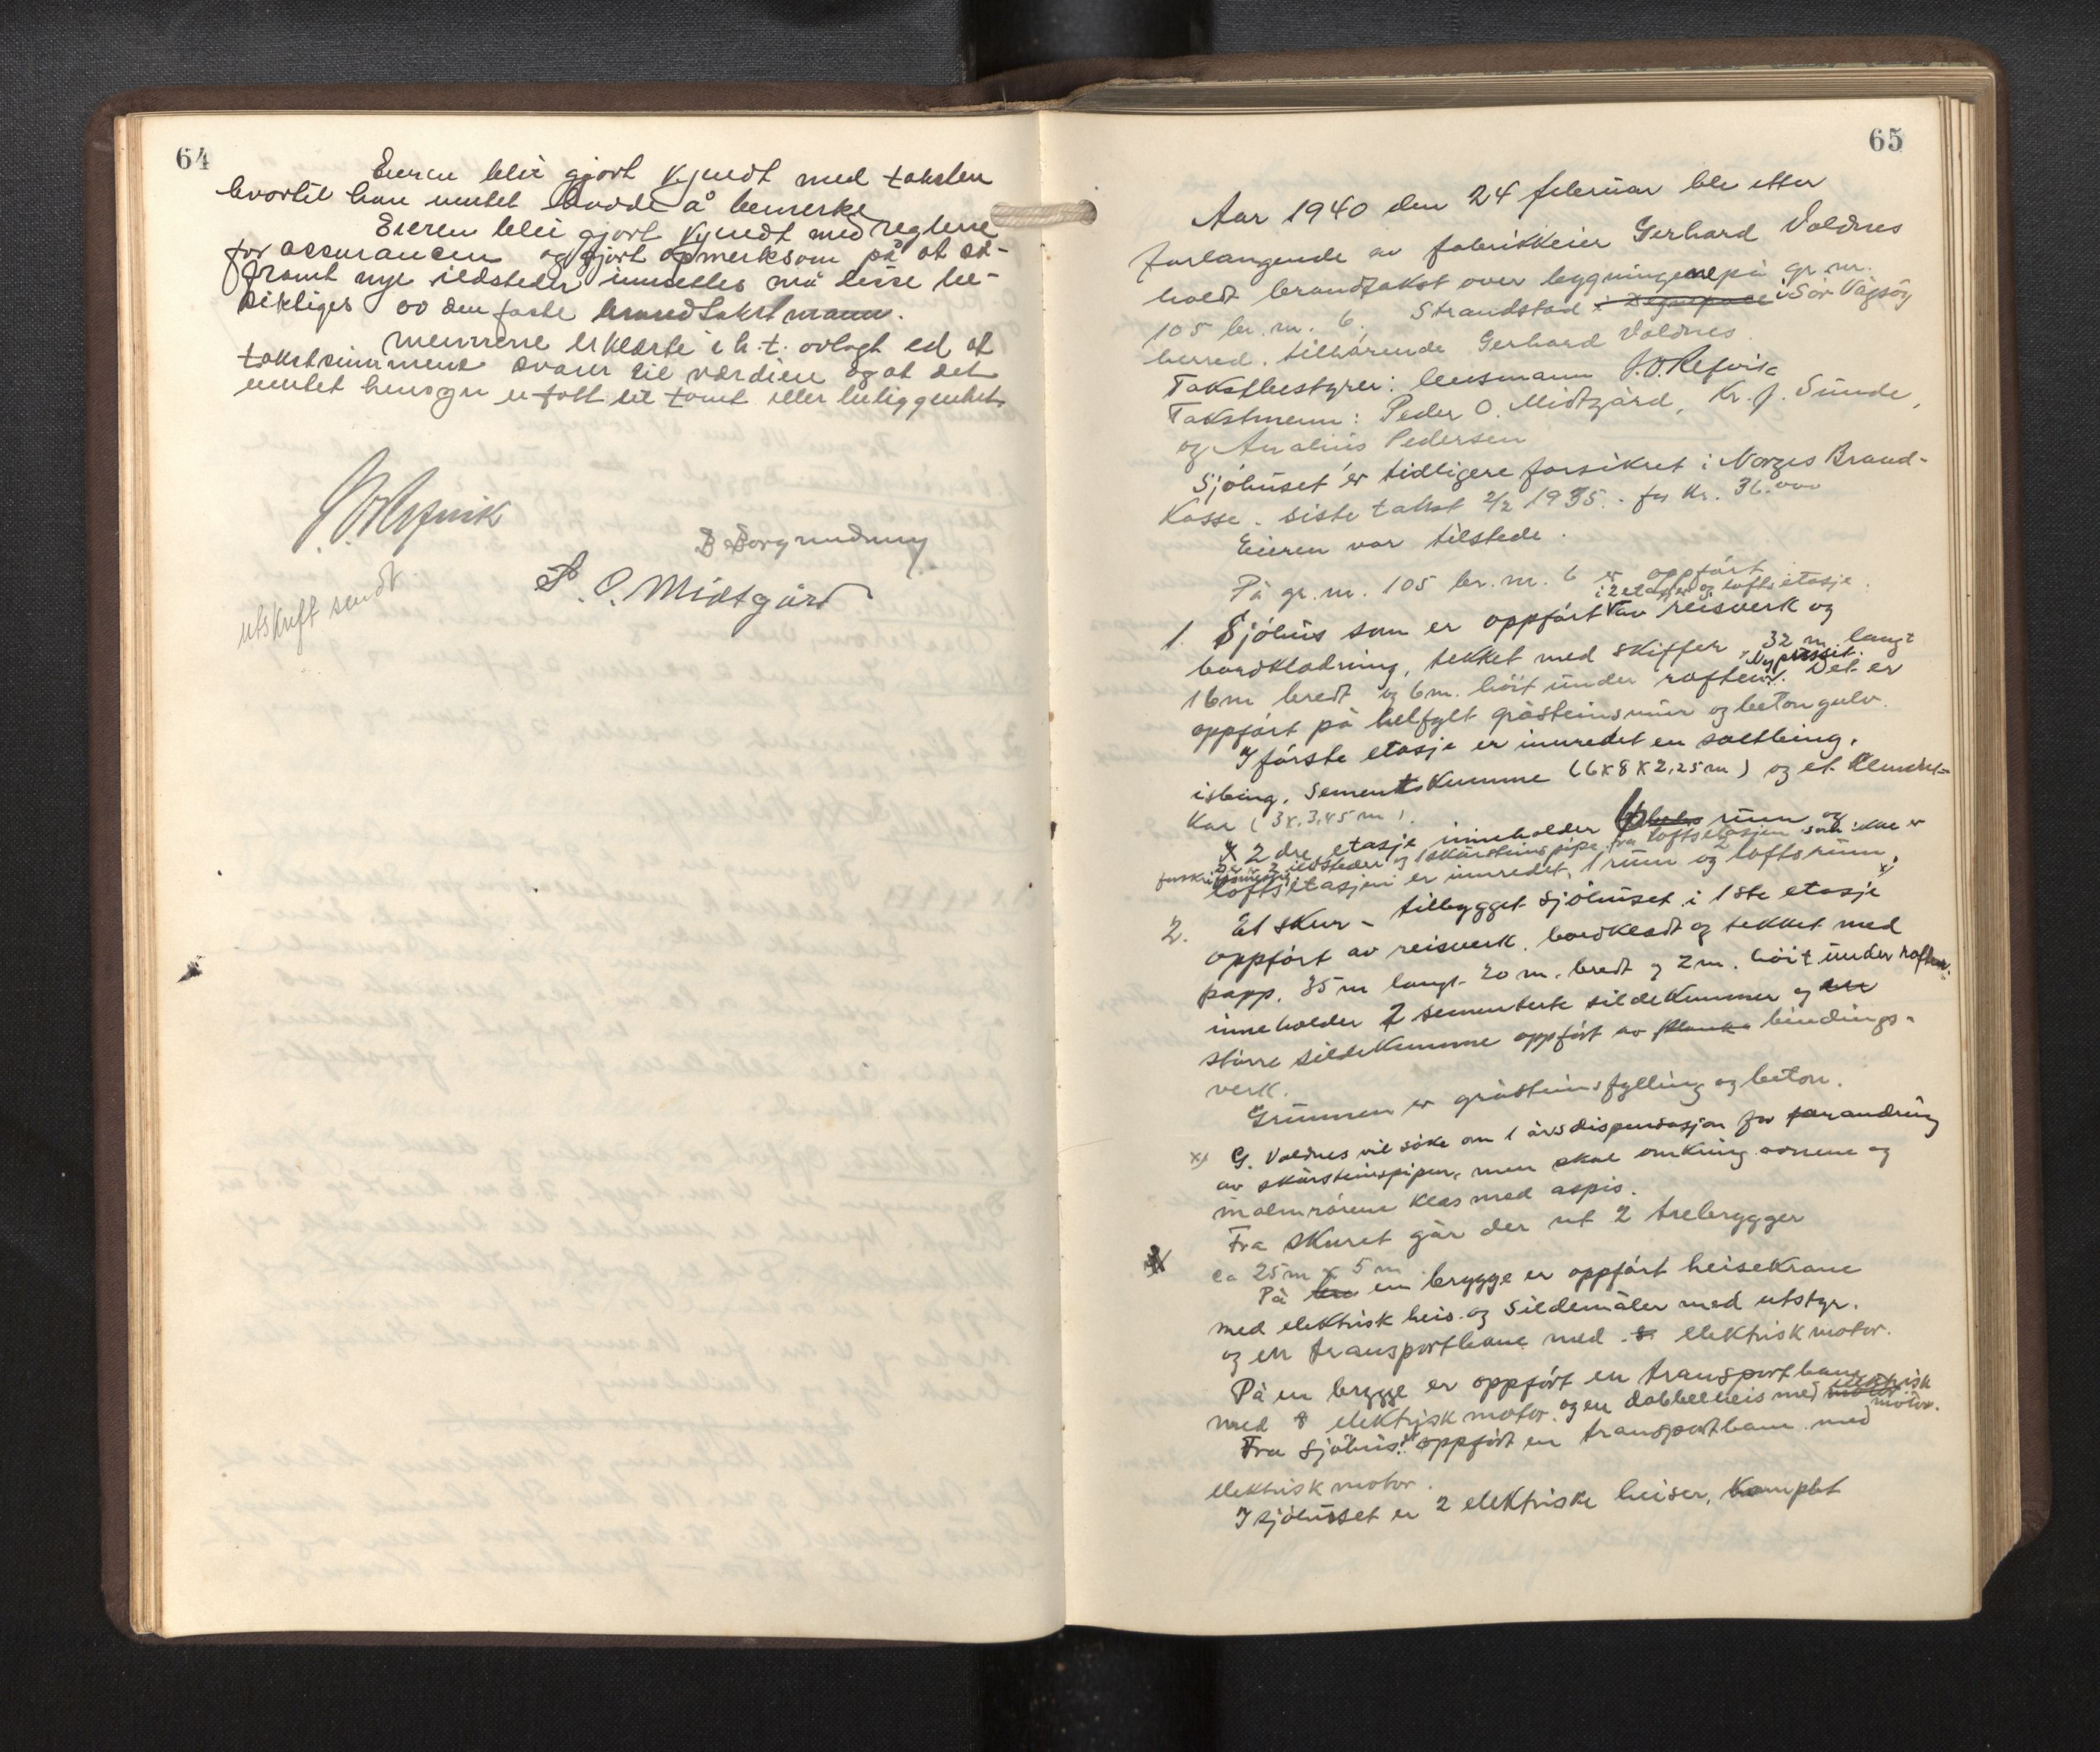 64
Eieren blei gjort kjendt med taksten
hvortil han intet hadde å bemerke
Eieren blei gjort kjendt med reglene
for assurancen og gjort opmerksom på at så-
framt nye ildsteder innsettes må disse be-
siktiges av den faste brandtakstmann.
mennene erklærte i h.t. avlagt ed at
takstsummene svarer til værdien og at det
intet hensyn er tatt til tomt eller beliggenhet.
P. O. Midtgård
utskrift sendt
65
Aar 1940 den 24 februar ble etter
forlangende av fabrikkeier Gerhard Voldnes
holdt brandtakst over bygningene på gr. nr.
105 br. nr. 6. Strandstad i Sør Vågsøy
herred. tilhørende Gerhard Voldnes.
Takstbestyrer: lensmann J.O. Refvik
Takstmenn: Peder O. Midtgård, Kr. J. Sunde,
og Analius Pedersen
Sjøhuset er tidligere forsikret i Norges Brand-
Kasse. siste takst 2/2 1935. for kr. 36.000
Eieren var tilstede.
På gr. nr. 105 br. nr. 6 er oppført
i 2 etasjer og loftsetasje.
1. Sjøhus som er oppført av reisverk og
bordkledning, tekket med skiffer, 32 m. langt
16m bredt og 6m. høit under raften. Det er
oppført på helfylt gråsteinsmur og betongulv.
I første etasje er innredet en saltbing,
isbing, Sements Kumme (6x8x2,25m) og et
Kar (3x3,45m).
x 2 dre etasje inneholder 6 rum og
2 ildsteder og 1 skorsteinspipe fra loftsetasjen som ikke er
loftsetasjen er innredet, 1 rum og 2 loftsrum. x)
2. Et skur - tilbygget sjøhuset i 1ste etasje
oppført av reisverk, bordkledt og tekket med
papp. 35m langt 20 m. bredt og 2m. høit under raften.
inneholder 2 sementerte sildekummer og en
større sildekumme oppført av planke bindings-
verk.
Grunnen er gråsteinsfylling og beton.
x) G. Voldnes vil søke om 1 års dispensasjon for forandring
av skorsteinspipen, men skal omkring ovnene og
malmrørene klæs med aspis.
Fra Skuret går der ut 2 trebrygger
ca 25m x 5m
På en brygge er oppført heisekrane
med elektrisk heis og sildemåler med utstyr.
og en transportbane med elektrisk motor.
På en brygge er oppført en transportbane
med elektrisk motor. og en dobbelheis med elektrisk
motor.
Fra sjøhuset oppført en transportbane med
elektrisk motor.
I sjøhuset er 2 elektriske heiser, komplet